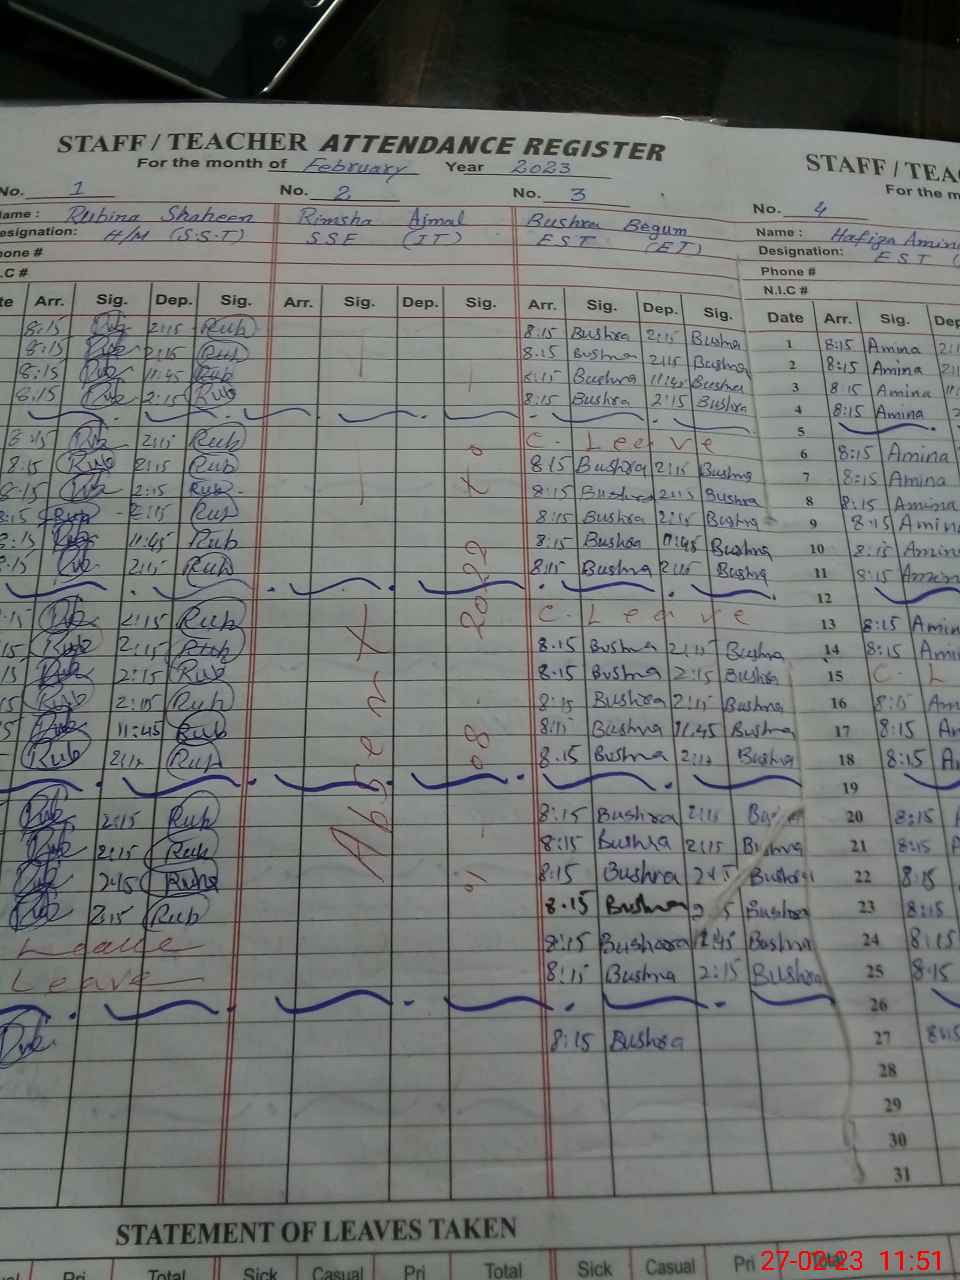 STAFF / TEACHER ATTENDANCE REGISTER
For the month of February Year 2023
No. 1 No. 2 No. 3
Name : Rubina Shaheen Rimsha Ajmal Bushra Begum
Designation: H/M (S.S.T) SSE (IT) EST (ET)
Phone #
I.C #
Arr. Sig. Dep. Sig. Arr. Sig. Dep. Sig. Arr. Sig. Dep. Sig.
8:15 Rub 2:15 Rub 8:15 Bushra 2:15 Bushra
8:15 Rub 2:15 Rub 8:15 Bushra 2:15 Bushra
8:15 Rub 11:45 Rub 8:15 Bushra 11:45 Bushra
8:15 Rub 2:15 Rub 8:15 Bushra 2:15 Bushra
8:15 Rub 2:15 Rub C. Leave
8:15 Rub 2:15 Rub 8:15 Bushra 2:15 Bushra
8:15 Rub 2:15 Rub 8:15 Bushra 2:15 Bushra
8:15 Rub 2:15 Rub 8:15 Bushra 2:15 Bushra
8:15 Rub 11:45 Rub 8:15 Bushra 11:45 Bushra
8:15 Rub 2:15 Rub 8:15 Bushra 2:15 Bushra
:15 Rub 2:15 Rub C. Leave
15 Rub 2:15 Rub 8:15 Bushra 2:15 Bushra
15 Rub 2:15 Rub 8:15 Bushra 2:15 Bushra
15 Rub 2:15 Rub 8:15 Bushra 2:15 Bushra
5 Rub 11:45 Rub 8:15 Bushra 11:45 Bushra
Rub 2:15 Rub 8:15 Bushra 2:15 Bushra
Rub 2:15 Rub 8:15 Bushra 2:15
Rub 2:15 Rub 8:15 Bushra 2:15 Bushra
Rub 2:15 Rub 8:15 Bushra 2:15 Bushra
Rub 2:15 Rub 8:15 Bushra Bushra
Leave 8:15 Bushra Bushra
Leave 8:15 Bushra 2:15 Bushra
Rub 8:15 Bushra
Absent
08-2022
STATEMENT OF LEAVES TAKEN
Pri Total Sick Casual Pri Total Sick Casual Pri Total
STAFF / TEA
For the m
No. 4
Name : Hafiza Amin
Designation: EST
Phone #
N.I.C #
Date Arr. Sig. Dep
1 8:15 Amina
2 8:15 Amina
3 8:15 Amina
4 8:15 Amina
5
6 8:15 Amina
7 8:15 Amina
8 8:15 Amina
9 8:15 Amin
10 8:15 Amin
11 8:15 Amin
12
13 8:15 Amin
14 8:15 Ami
15 C. L
16 8:15 Am
17 8:15 An
18 8:15 A
19
20 8:15
21 8:15
22 8:15
23 8:15
24 8:15
25 8:15
26
27 8:15
28
29
30
31
27-02-23 11:51